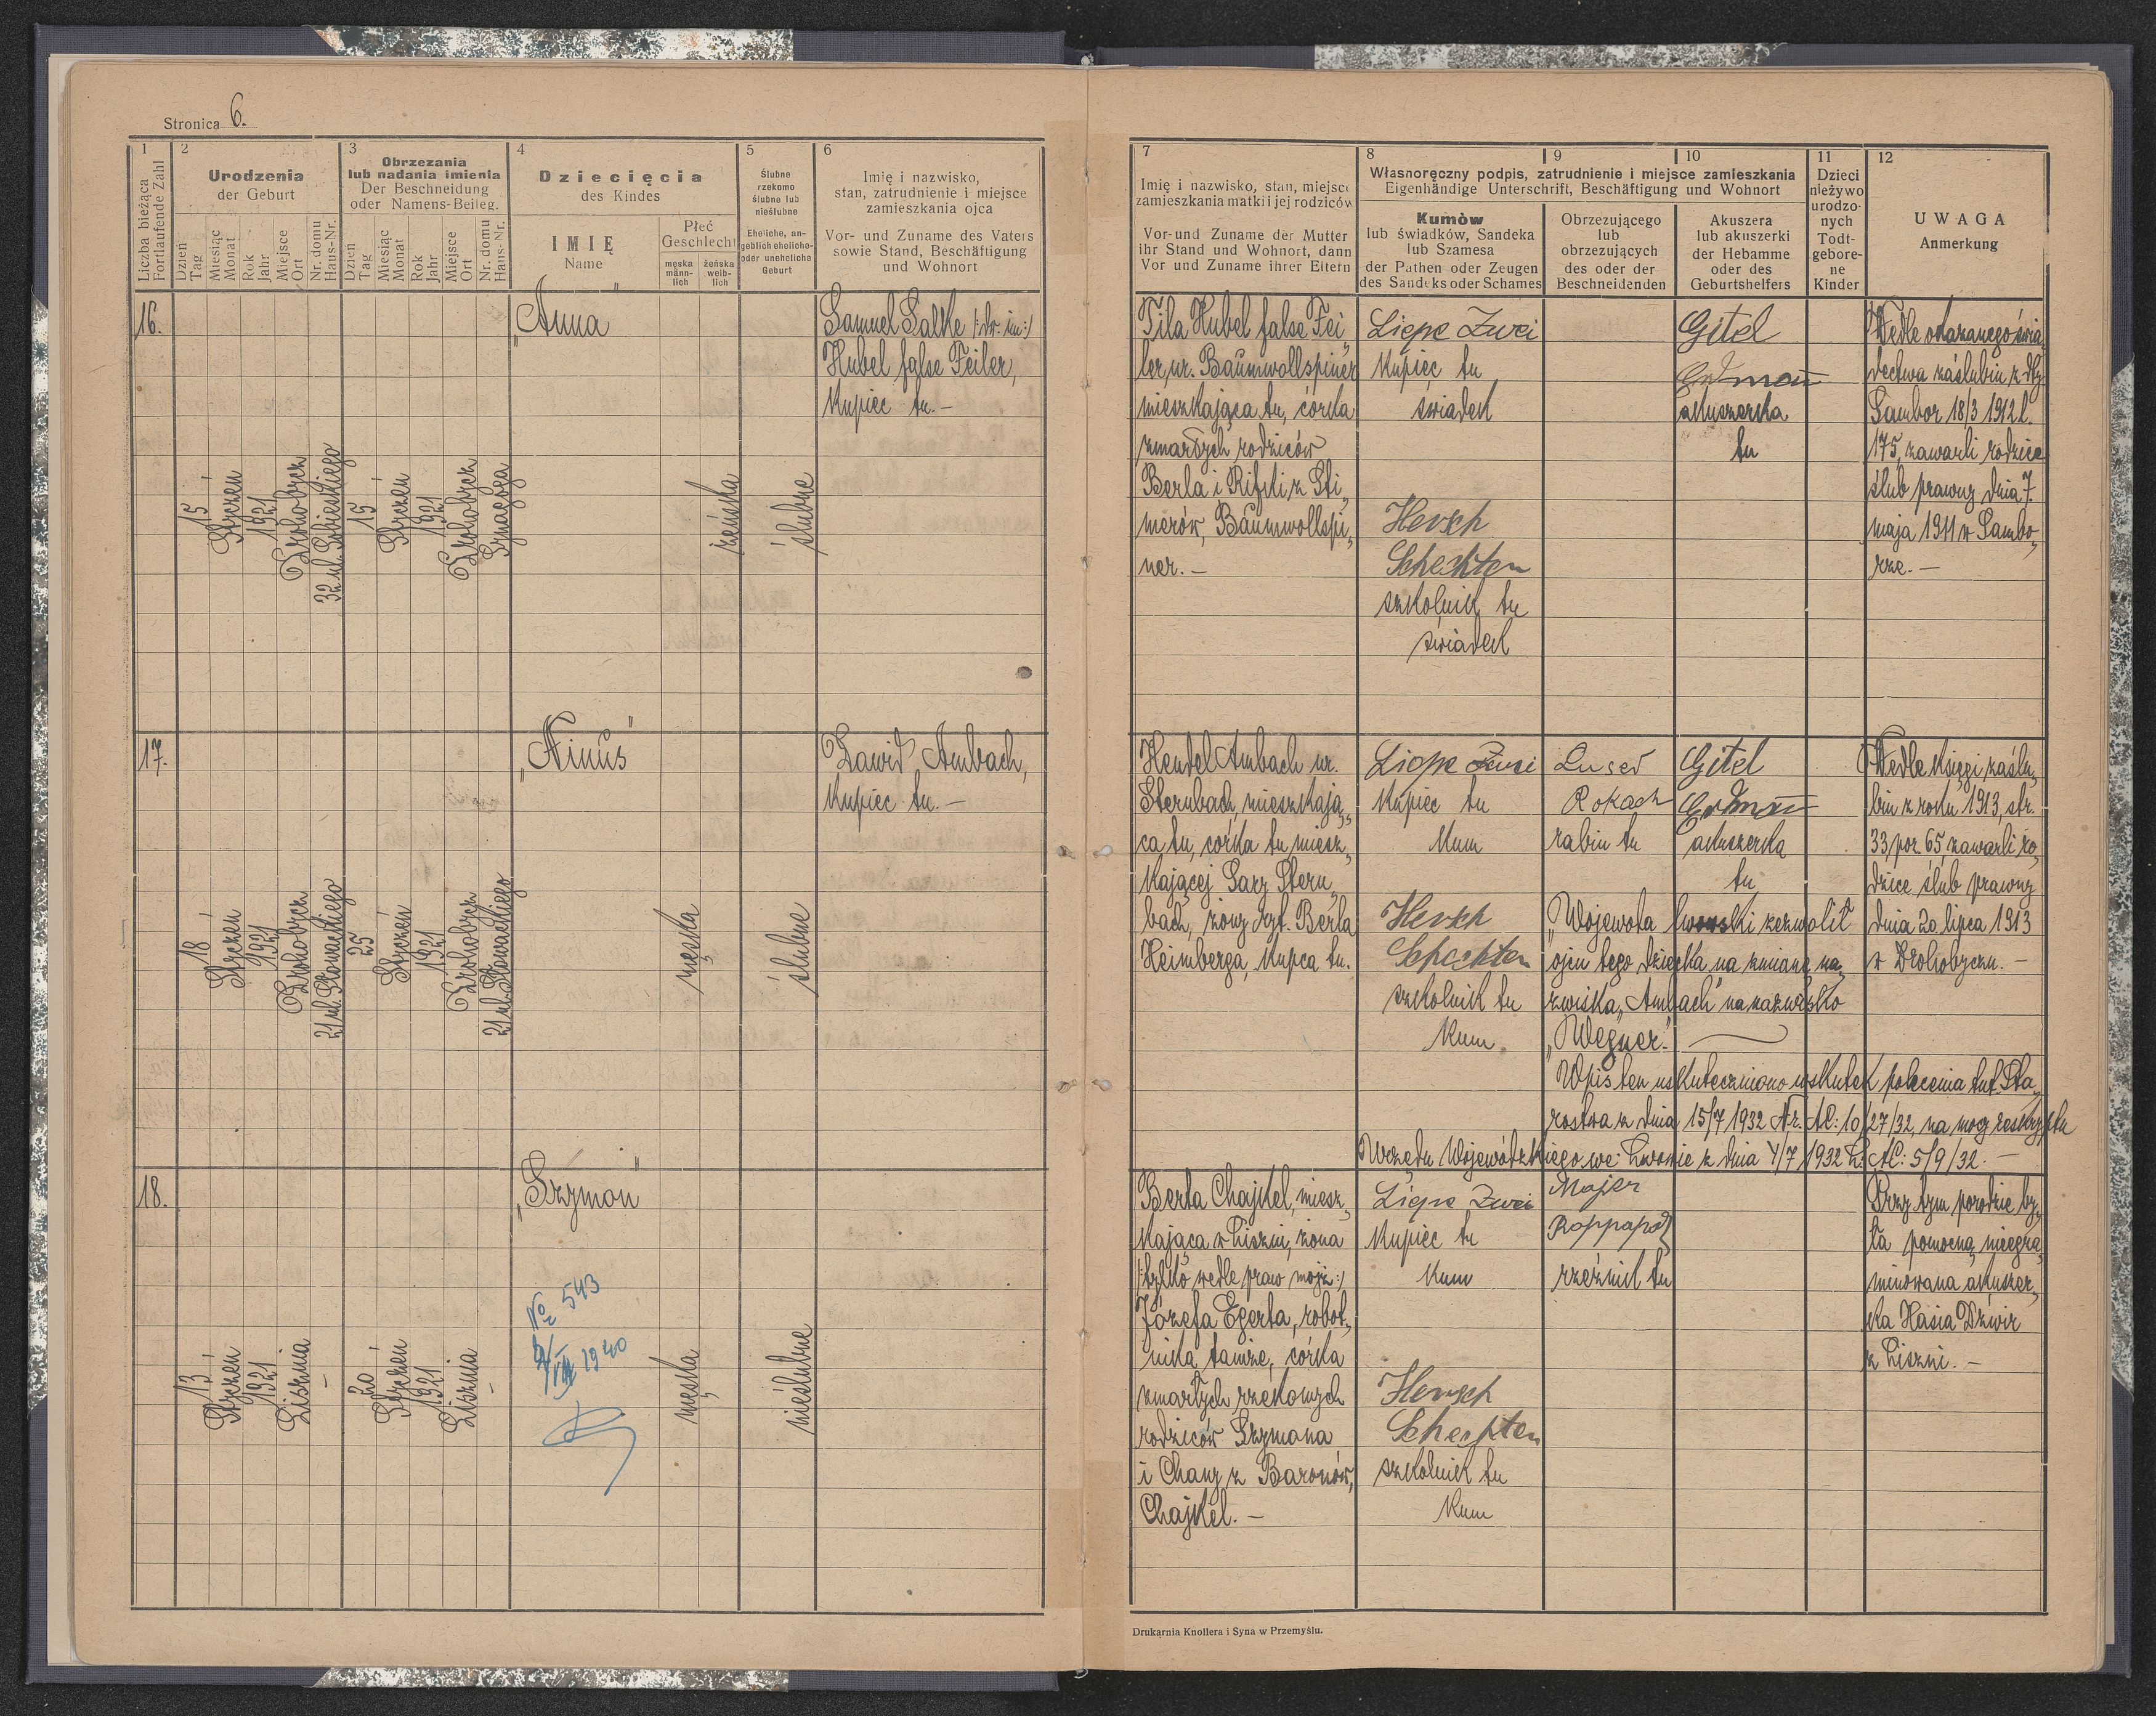 Stronica 6.
1
Liczba bieżąca
Fortlaufende Zahl
2
Urodzenia
der Geburt
Dzień
Tag
Miesiąc
Monat
Rok
Jahr
Miejsce
Ort
Nr. domu
Haus-Nr.
3
Obrzezania
lub nadania imienia
Der Beschneidung
oder Namens-Beileg.
Dzień
Tag
Miesiąc
Monat
Rok
Jahr
Miejsce
Ort
Nr. domu
Haus-Nr.
4
Dziecięcia
des Kindes
IMIĘ
Name
Płeć
Geschlecht
męska
männ-
lich
żeńska
weib-
lich
5
Ślubne
rzekomo
ślubne lub
nieślubne
Eheliche, an-
geblich eheliche-
oder uneheliche
Geburt
6
Imię i nazwisko,
stan, zatrudnienie i miejsce
zamieszkania ojca
Vor- und Zuname des Vaters
sowie Stand, Beschäftigung
und Wohnort
7
Imię i nazwisko, stan, miejsce
zamieszkania matki i jej rodziców
Vor-und Zuname der Mutter
ihr Stand und Wohnort, dann
Vor und Zuname ihrer Eltern
8
9
10
Własnoręczny podpis, zatrudnienie i miejsce zamieszkania
Eigenhändige Unterschrift, Beschäftigung und Wohnort
Kumòw
lub świadków, Sandeka
lub Szamesa
der Pathen oder Zeugen
des Sandeks oder Schames
Obrzezującego
lub
obrzezujących
des oder der
Beschneidenden
Akuszera
lub akuszerki
der Hebamme
oder des
Geburtshelfers
11
Dzieci
nieżywo
urodzo-
nych
Todt-
gebore-
ne
Kinder
12
UWAGA
Anmerkung
16.
15
Styczeń
1921
Drohobycz
32 ul. Sobieskiego
15
Styczeń
1921
Drohobycz
Synagoga
„Anna"
żeńska
ślubne
Samuel Salke /:dw. im:/
Hubel false Feiler,
Kupiec tu.-
Tila Hubel false Fei„
ler, ur. Baumwollspiner
mieszkająca tu, córka
zmarłych rodziców
Berla i Rifki z Sti„
merów, Baumwollspi„
ner.-
Liepe Zwei
Kupiec tu
świadek
Hersch
Schechter
szkolnik tu
świadek
Gitel
Erdman
akuszerka
tu
Wedle okazanego świa„
dectwa zaślubin z dty
Sambor 18/3 1912 l.
175, zawarli rodzice
ślub prawny dnia 7.
maja 1911 w Sambo„
rze.-
17.
18
Styczeń
1921
Drohobycz
21 ul. Słowackiego
25
Styczeń
1921
Drohobycz
21 ul. Słowackiego
„Ninus"
męska
ślubne
Dawid Ambach,
Kupiec tu.-
Hendel Ambach ur.
Sternbach, mieszkają„
ca tu, córka tu miesz„
kającej Sary Stern„
bach, żony ryt. Berla
Heimberga, kupca tu.
Liepe Zwei
Kupiec tu
Kum
Hersch
Schechter
szkolnik tu
Kum
Luser
Rokach
rabin tu
Gitel
Erdman
akuszerka
tu
Wedle Księgi zaślu„
bin z roku 1913, str.
33, poz. 65, zawarli ro„
dzice ślub prawny
dnia 20 lipca 1913
w Drohobyczu.-
„Wojewoda lwowski zezwolił
ojcu tego dziecka na zmianę na„
zwiska „Ambach" na nazwisko
„Wegner".
Wpis ten uskuteczniono wskutek polecenia tut. Sta„
rostwa z dnia 15/7 1932 Nr. AC: 10/27/32, na mocy reskryptu
Urzędu Wojewódzkiego we Lwowie z dnia 4/7 1932 L: AC: 5/9/32.-
18.
13
Styczeń
1921
Lisznia
-
20
Styczeń
1921
Lisznia
-
„Szymon"
№ 543
1940
męska
nieślubne
Berta Chajkel, miesz„
kająca w Liszni, żona
/:tylko wedle praw mojż:/
Józefa Egerta, robot„
nika tamże, córka
zmarłych rzekomych
rodziców Szymona
i Chany z Baronów,
Chajkel.-
Liepe Zwei
Kupiec tu
Kum
Hersch
Schechter
szkolnik tu
Kum
Majer
Rappaport
rzeźnik tu
Przy tym porodzie by„
ła pomocną nieegza„
minowana akuszer„
ka Hasia Dźwir
z Liszni.-
Drukarnia Knollera i Syna w Przemyślu.